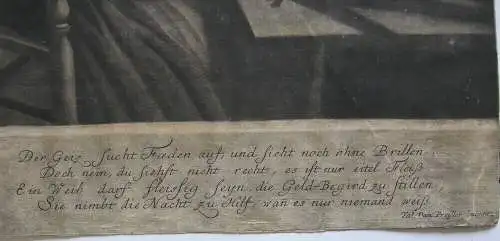 Der Geiz sucht Fäden auf, und sieht noch ohne Brillen.
Doch nein, du siehst nicht recht, es ist nur eitel Fleiß
Ein Weib darf fleissig seyn, die Geld-Begird zu stillen,
Sie nimbt die Nacht zu Hilf, wan es nur niemand weiß.